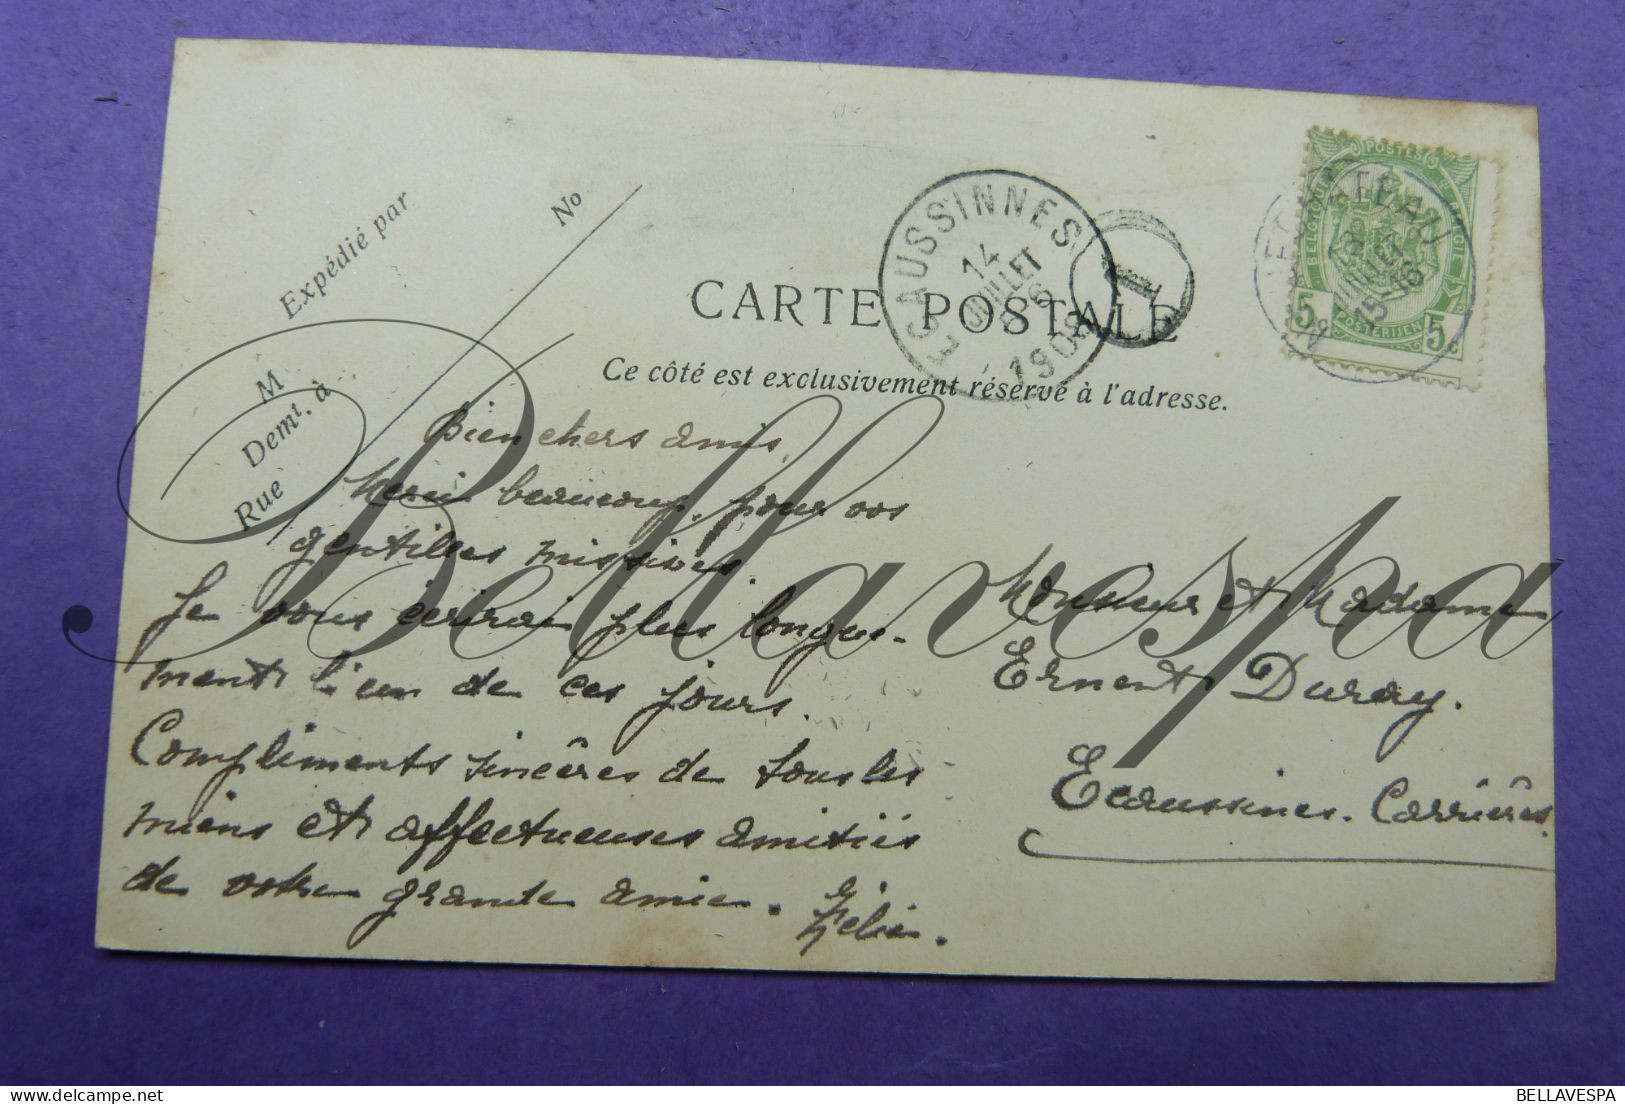 Expédié par
No
M
Demt. à
Rue
CARTE POSTALE
Ce côté est exclusivement réservé à l'adresse.
ECAUSSINNES
14
JUILLET
6
1908
1
POSTES
BELGIQUE
5c 5c
POSTERIJEN
JUILLET
15-16
Bien chers amis,
Merci beaucoup, pour vos
gentilles missives.
Je vous écrirai plus longue-
ment l'un de ces jours.
Compliments sincères de tous les
miens et affectueuses amitiés
de votre grande amie.
Zélia.
Monsieur et Madame
Ernest Duray.
Ecaussines. Carrières.
Bellavespa
BELLAVESPA